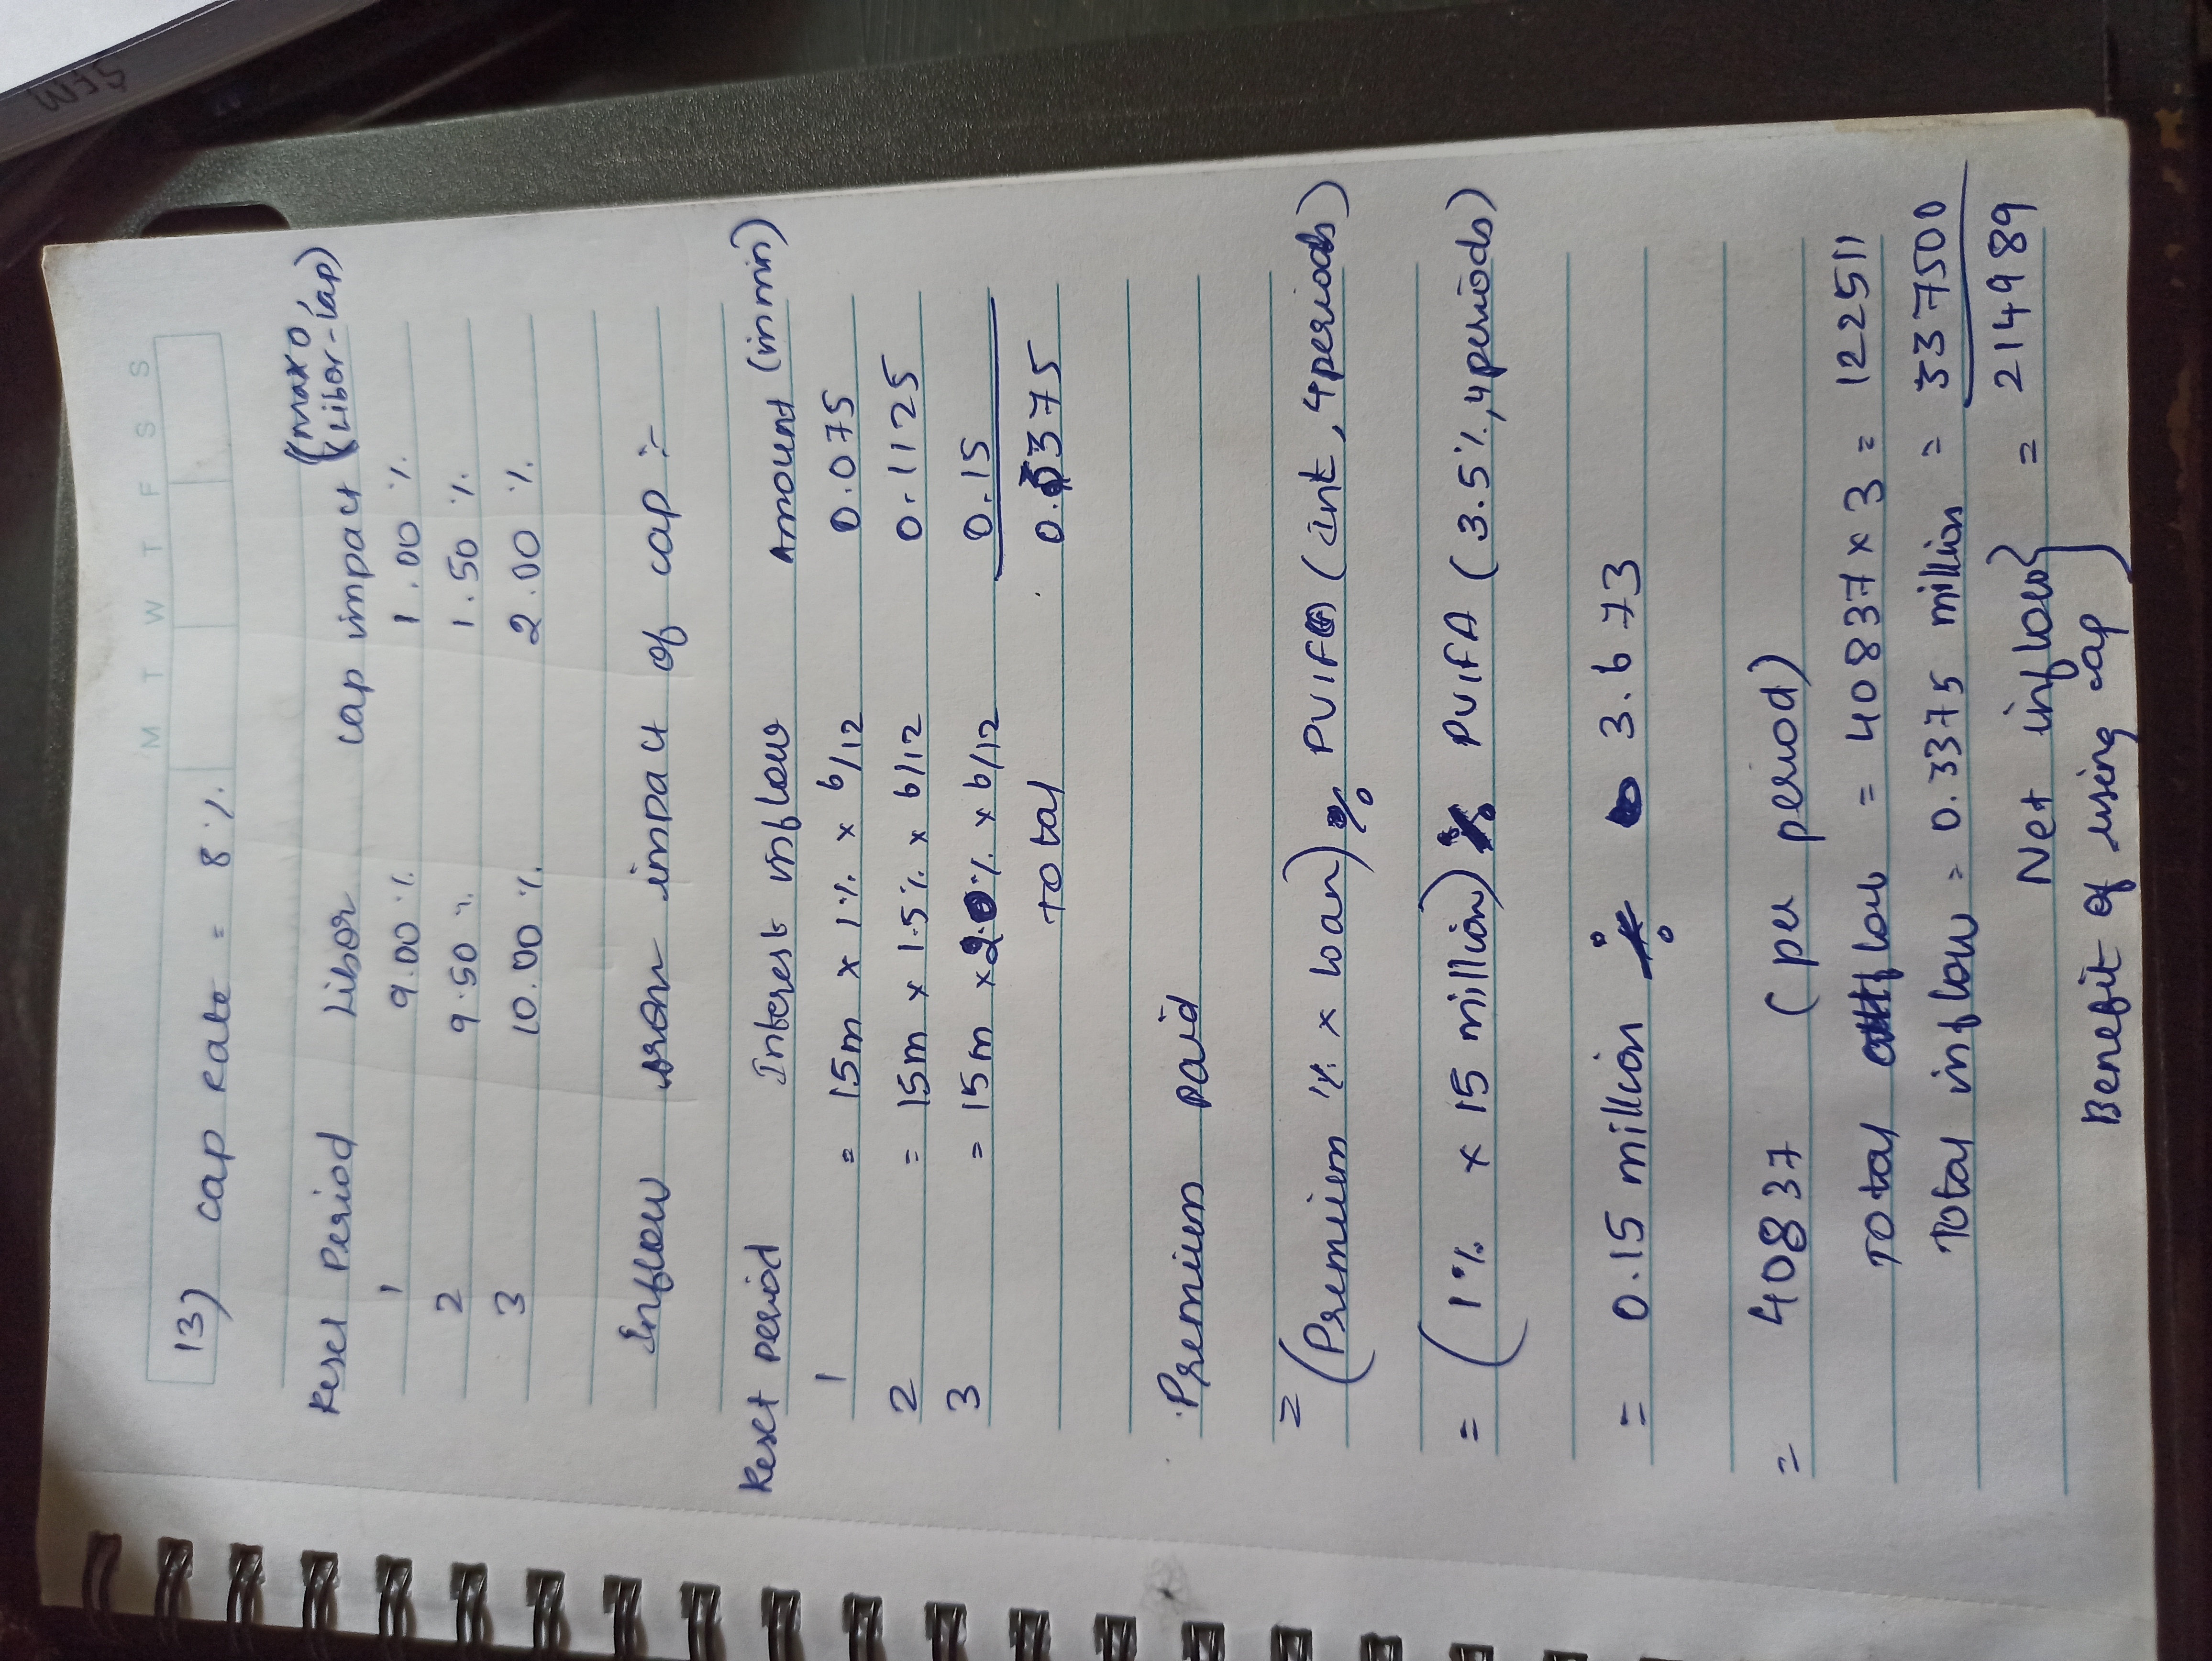 SFM
M T W T F S S
13) cap rate = 8 %.
Reset Period Libor cap impact (max 0, Libor-cap)
1 9.00 % 1.00 %
2 9.50 % 1.50 %
3 10.00 % 2.00 %
Inflow impact of cap :-
Reset period Interest inflow Amount (in mn)
1 = 15m x 1% x 6/12 0.075
2 = 15m x 1.5% x 6/12 0.1125
3 = 15m x 2.0% x 6/12 0.15
Total 0.3375
Premium paid
= (Premium % x loan) ÷ PVIFA (int, 4 periods)
= (1% x 15 million) ÷ PVIFA (3.5%, 4 periods)
= 0.15 million ÷ 3.673
= 40837 (per period)
Total outflow = 40837 x 3 = 122511
Total inflow = 0.3375 million = 337500
Net inflow } = 214989
Benefit of using cap